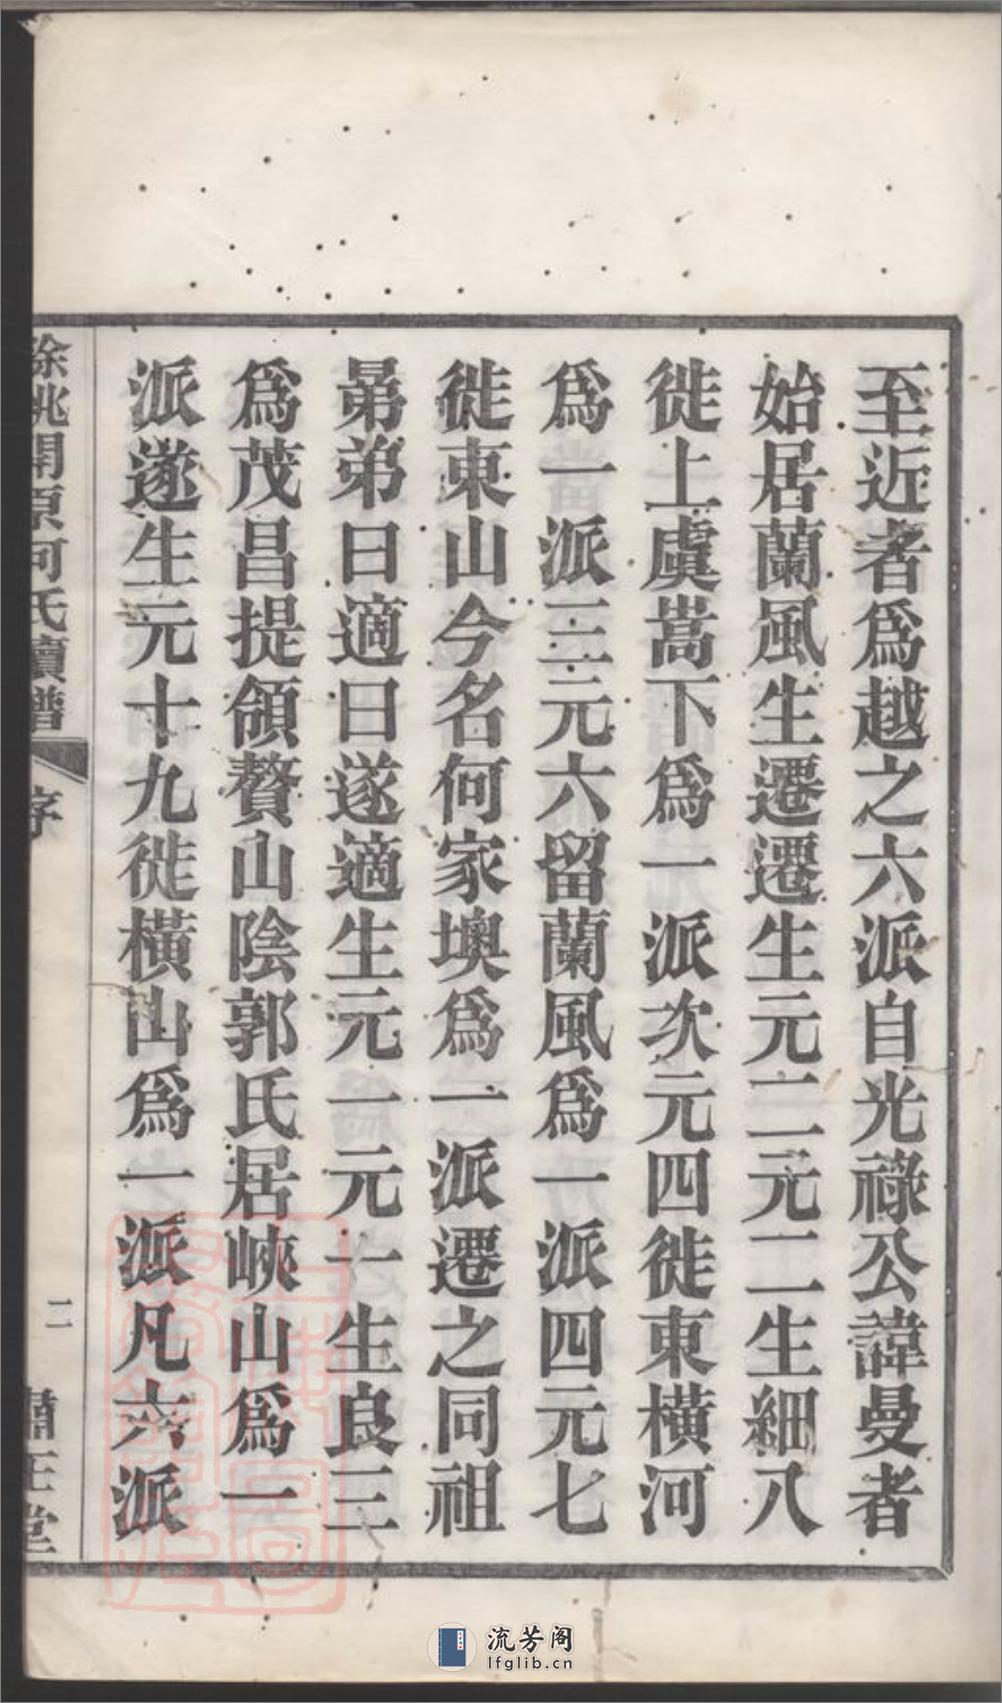 至近者爲越之六派自光祿公諱曼者
始居蘭風生遷遷生元二元二生細八
徙上虞嵩下爲一派次元四徙東橫河
爲一派三元六留蘭風爲一派四元七
徙東山今名何家墺爲一派遷之同祖
晜弟曰適曰遂適生元一元一生良三
爲茂昌提領贅山陰郭氏居峽山爲一
派遂生元十九徙橫山爲一派凡六派
餘姚開原何氏續譜
序
二
肅正堂
流芳阁
lfglib.cn